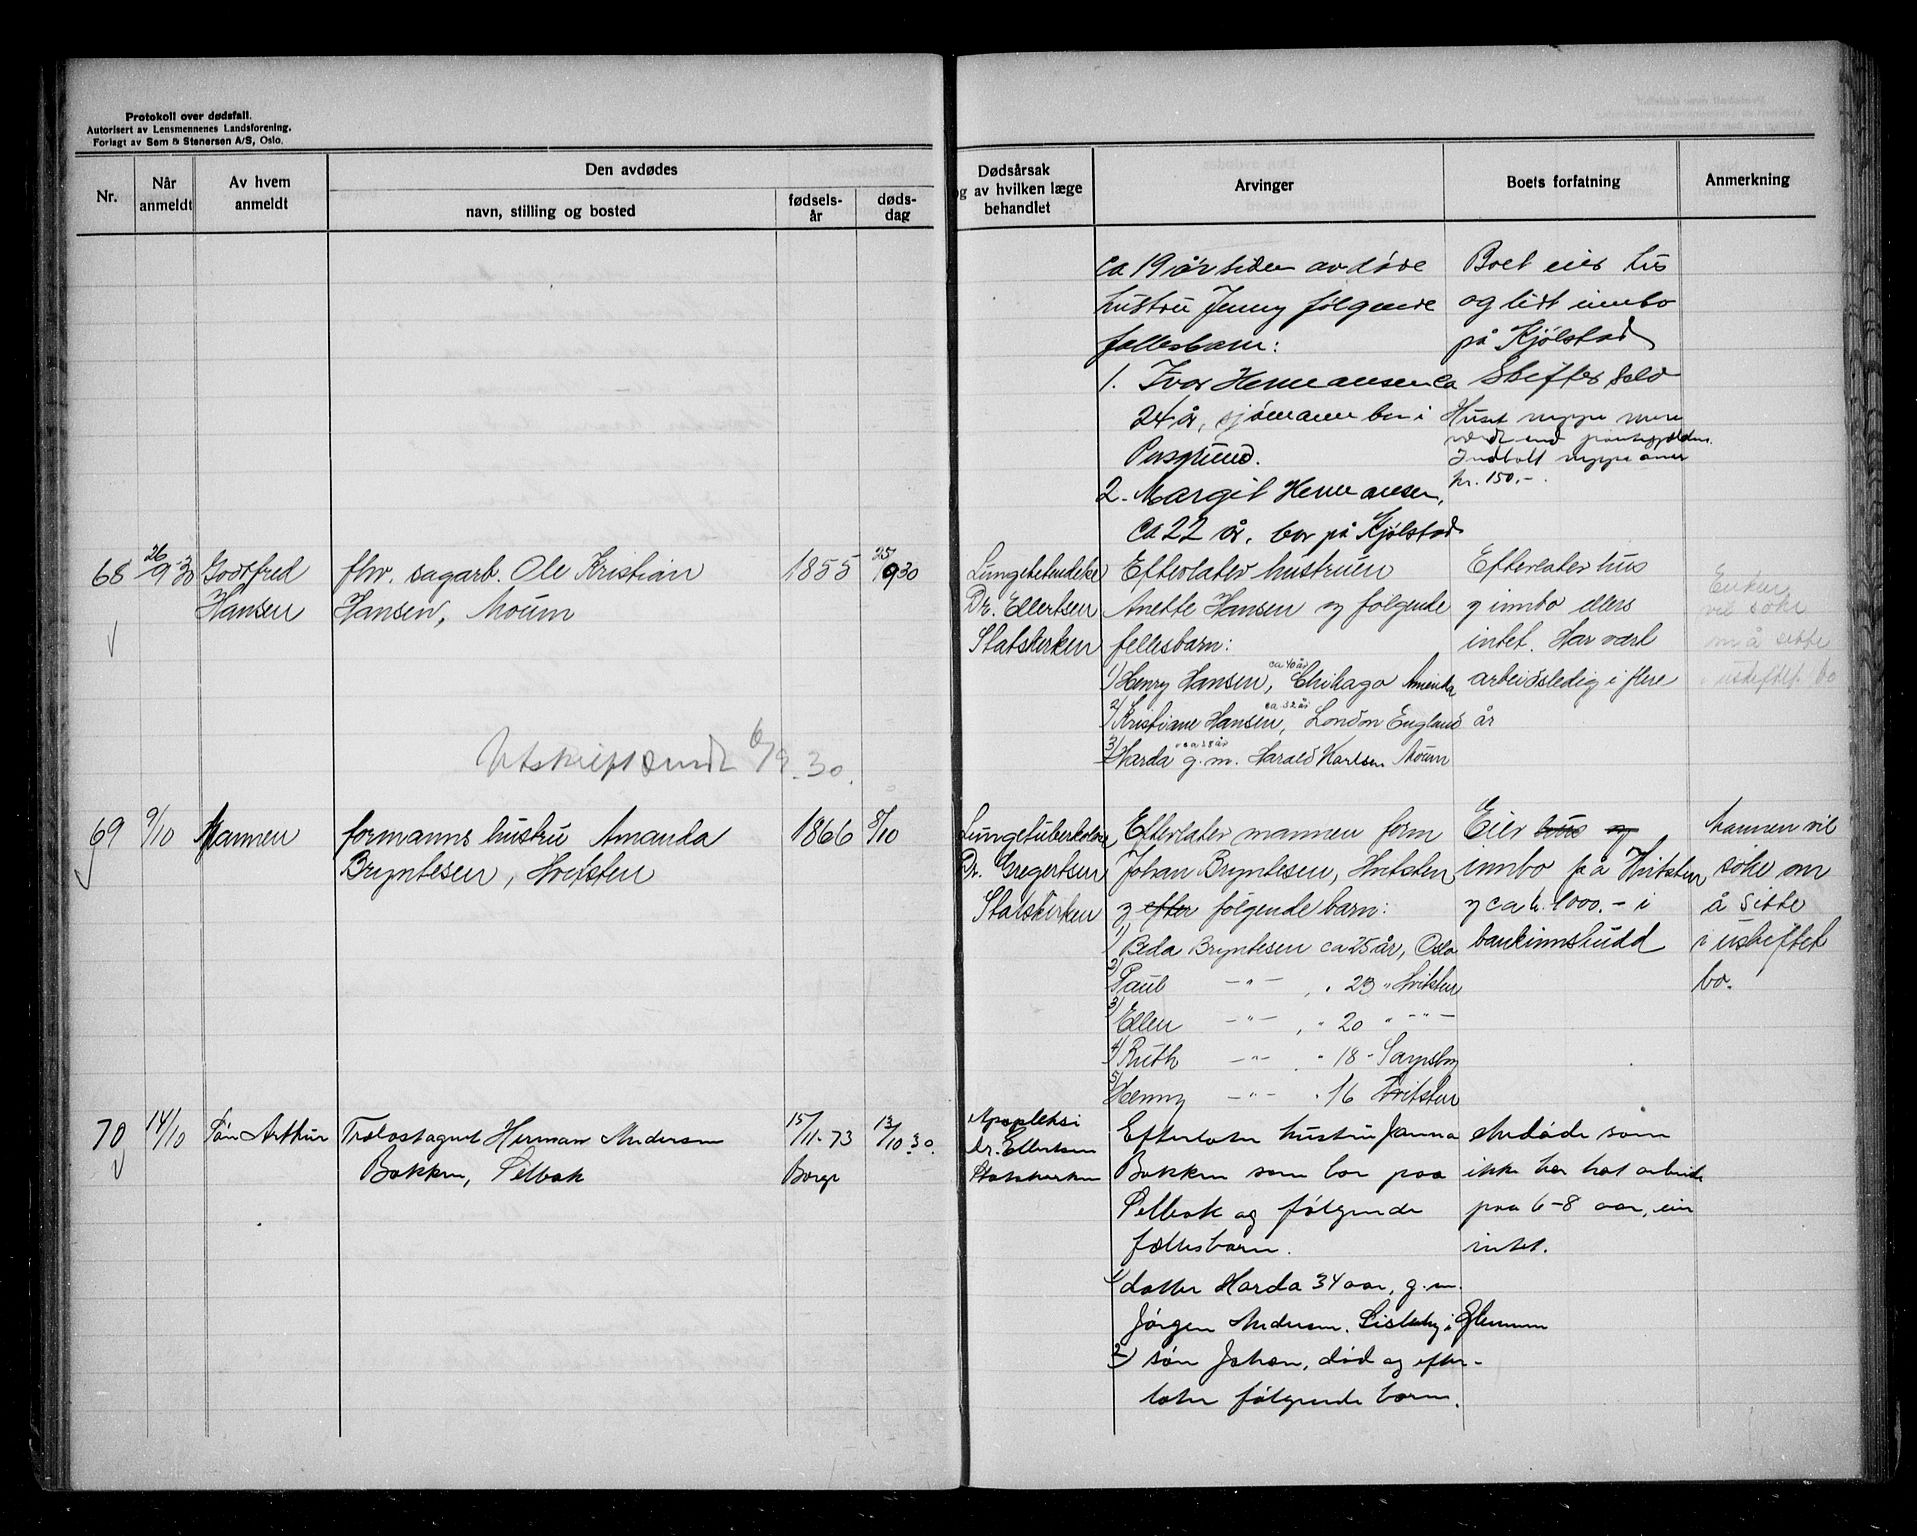 Protokoll over dødsfall.
Autorisert av Lensmennenes Landsforening.
Forlagt av Sem & Stenersen A/S, Oslo.
Nr.
Når anmeldt
Av hvem anmeldt
Den avdødes
navn, stilling og bosted
fødsels-år
døds-dag
Dødsårsak
og av hvilken læge
behandlet
Arvinger
Boets forfatning
Anmerkning
ca 19 år siden avdøde
hustru Jenny følgende
fellesbarn:
1. Ivar Hermansen ca
24 år, sjømann bor i
Porsgrund.
2. Margit Hermansen,
ca 22 år, bor på Kjølstad
Boet eier hus
og litt innbo
på Kjølstad
Skifter selv
Huset neppe mere
verdt end pantegjælden.
Indboet neppe over
kr. 150.-.
68
26/9-30
Godtfred
Hansen
fhv. sagarb. Ole Kristian
Hansen, Moum
1855
25/9 30
Dr. Ellertsen
Statskirken
Efterlater hustruen
Anette Hansen og følgende
fellesbarn:
1) Henry Hansen, ca 40 år Chikago Amerika
2) Kristiane Hansen, ca 32 år London England
3) Harda g.m. Harald Karlsen Moum
Efterlater hus
og innbo ellers
intet. Har vært
arbeidsledig i flere
år
Enken
vil søke
om å sitte
i uskiftet bo
Utskrift sendt 6/9.30.
69
9/10
Mannen
formanns hustru Amanda
Bryntesen, Hvitsten
1866
8/10
Lungetuberkolose
Dr. Gregertsen
Statskirken
Efterlater mannen form
Johan Bryntesen, Hvitsten
og efter følgende barn:
1) Beda Bryntesen ca 25 år, Oslo
2) Paul -"- , " 23 " Hvitsten
3) Ellen -"- , " 20 " -"-
4) Ruth -"- " 18 - Sarpsborg
5) Henny -"- " 16 Hvitsten
Eier hus og
innbo på Hvitsten
og ca kr. 1000.- i
bankinnskudd
Mannen vil
søke om
å sitte
i uskiftet
bo.
70
14/10
Søn Arthur
Trælastagent Herman Andersen
Bakken, Selbak
15/11-73
Borge
13/10.30.
Apopleksi
Dr. Ellertsen
Statskirken
Efterlater hustru Janna
Bakken som bor paa
Selbak og følgende
fællesbarn.
1) datter Harda 34 aar, g.m.
Jørgen Andersen. Lisleby i Glemmen
2) søn Johan, død og efter-
later følgende barn.
Avdøde som
ikke har hat arbeide
paa 6-8 aar, eier
intet.